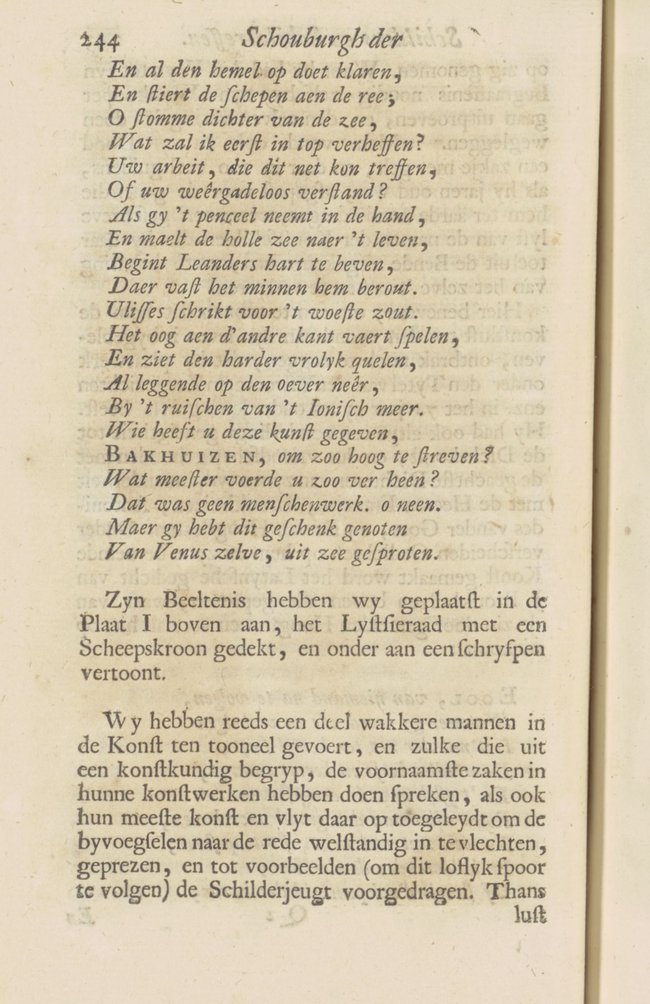 244 Schouburgh der
En al den hemel op doet klaren,
En ſtiert de ſchepen aen de ree;
O ſtomme dichter van de zee,
Wat zal ik eerſt in top verheffen?
Uw arbeit, die dit net kon treffen,
Of uw weêrgadeloos verſtand?
Als gy 't penceel neemt in de hand,
En maelt de holle zee naer 't leven,
Begint Leanders hart te beven,
Daer vaſt het minnen hem berout.
Uliſſes ſchrikt voor 't woeſte zout.
Het oog aen d'andre kant vaert ſpelen,
En ziet den harder vrolyk quelen,
Al leggende op den oever neêr,
By 't ruiſchen van 't Ioniſch meer.
Wie heeft u deze kunſt gegeven,
BAKHUIZEN, om zoo hoog te ſtreven?
Wat meeſter voerde u zoo ver heen?
Dat was geen menſchenwerk. o neen.
Maer gy hebt dit geſchenk genoten
Van Venus zelve, uit zee geſproten.
Zyn Beeltenis hebben wy geplaatſt in de
Plaat I boven aan, het Lyſtſieraad met een
Scheepskroon gedekt, en onder aan een ſchryfpen
vertoont.
Wy hebben reeds een deel wakkere mannen in
de Konſt ten tooneel gevoert, en zulke die uit
een konſtkundig begryp, de voornaamſte zaken in
hunne konſtwerken hebben doen ſpreken, als ook
hun meeſte konſt en vlyt daar op toegeleydt om de
byvoegſelen naar de rede welſtandig in te vlechten,
geprezen, en tot voorbeelden (om dit loflyk ſpoor
te volgen) de Schilderjeugt voorgedragen. Thans
luſt